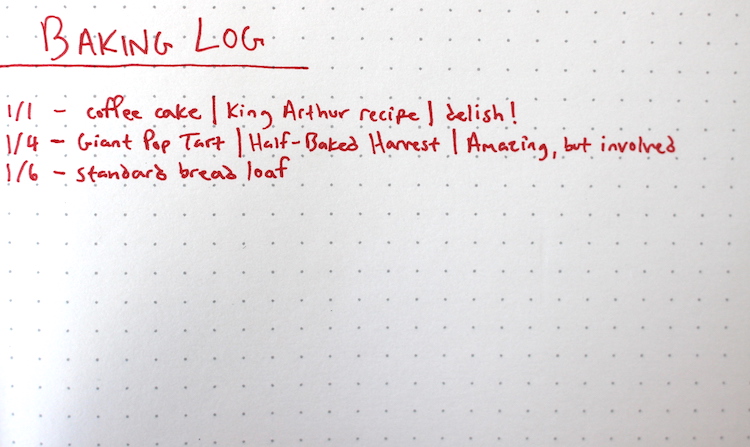 BAKING LOG
1/1 - coffee cake | King Arthur recipe | delish!
1/4 - Giant Pop Tart | Half-Baked Harvest | Amazing, but involved
1/6 - standard bread loaf